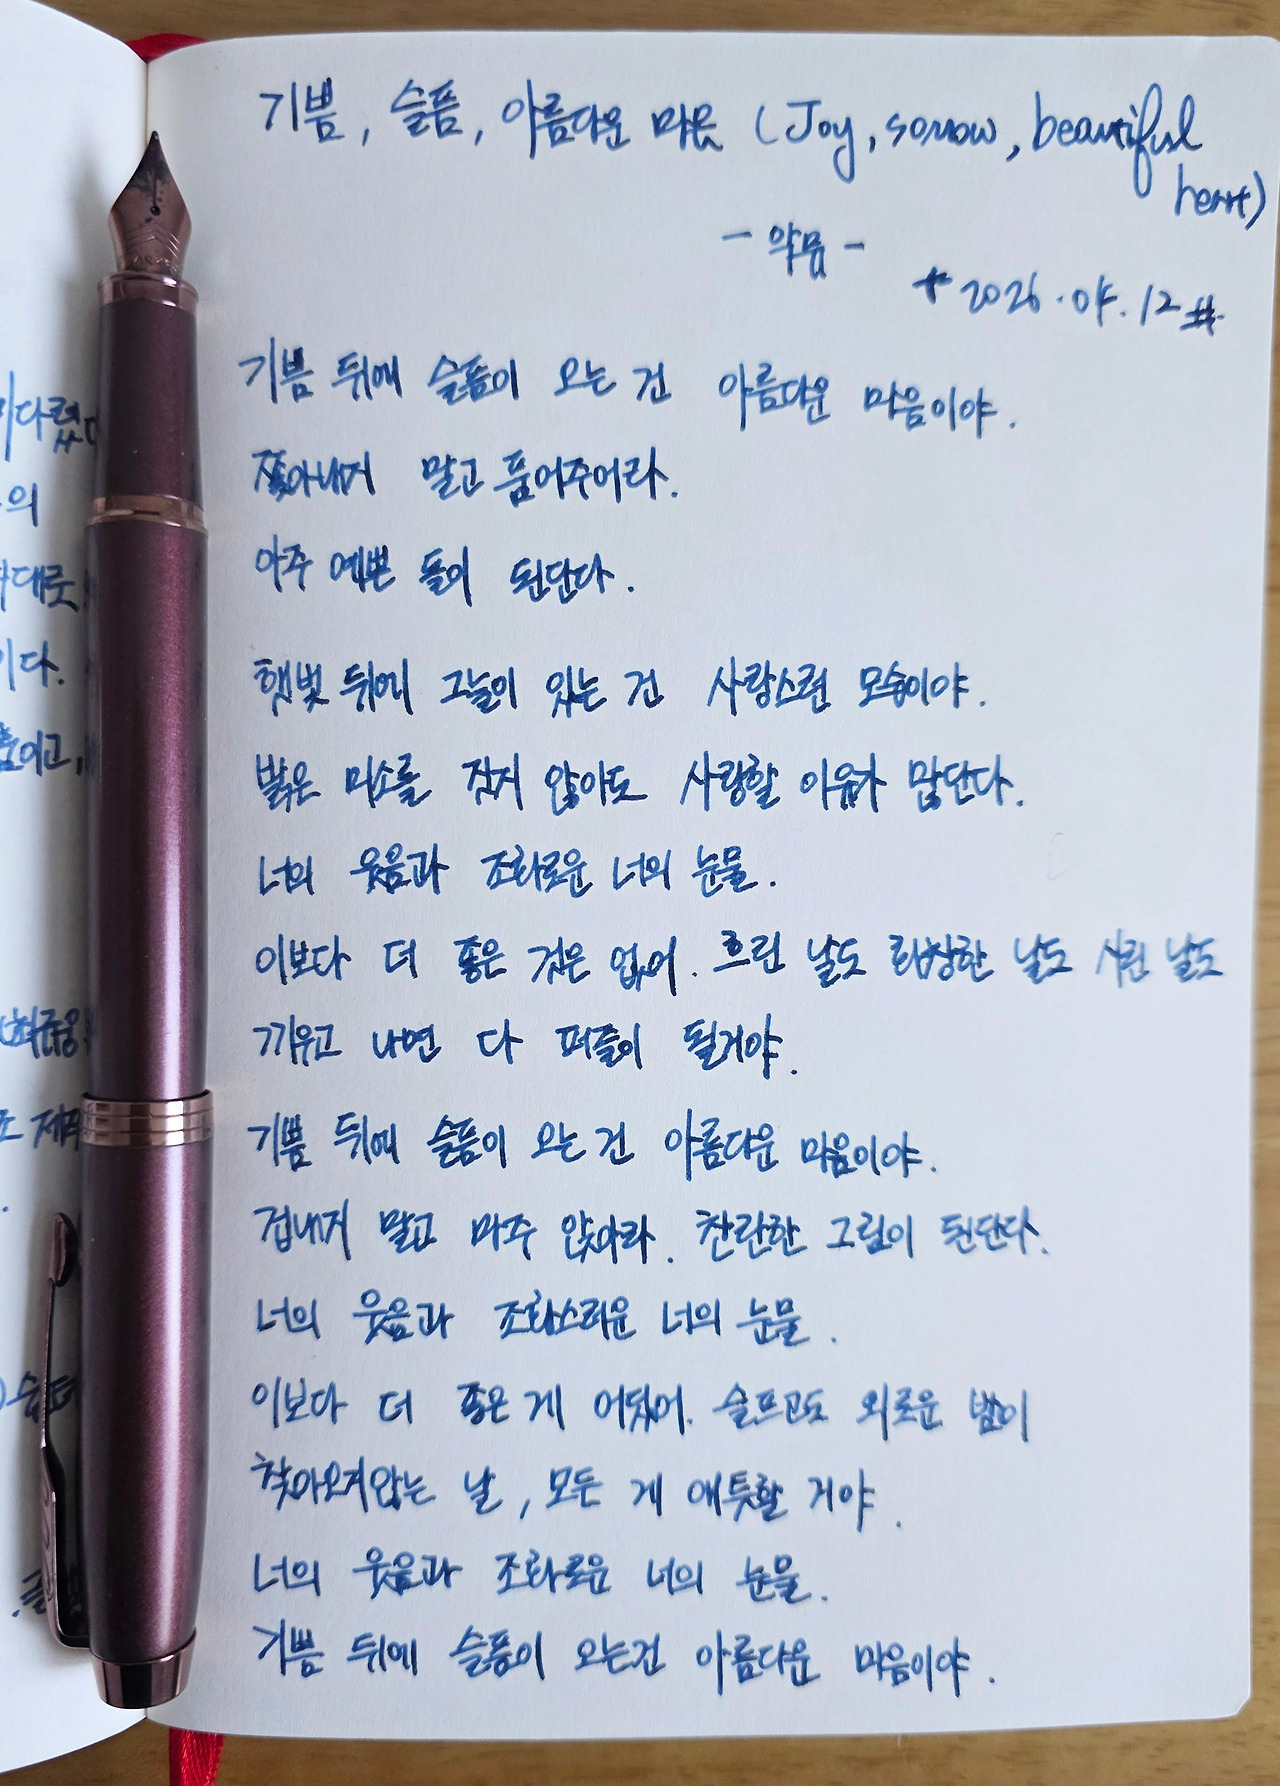 기쁨, 슬픔, 아름다운 마음 (Joy, sorrow, beautiful
heart)
- 악뮤 -
+ 2026.04.12 #
기쁨 뒤에 슬픔이 오는 건 아름다운 마음이야.
쫓아내지 말고 품어주어라.
아주 예쁜 돌이 된단다.
햇빛 뒤에 그늘이 있는 건 사랑스런 모습이야.
밝은 미소를 짓지 않아도 사랑할 이유가 많단다.
너의 웃음과 조화로운 너의 눈물.
이보다 더 좋은 것은 없어. 흐린 날도 화창한 날도 시린 날도
끼우고 나면 다 퍼즐이 될거야.
기쁨 뒤에 슬픔이 오는 건 아름다운 마음이야.
겁내지 말고 마주 앉아라. 찬란한 그림이 된단다.
너의 웃음과 조화스러운 너의 눈물.
이보다 더 좋은 게 어딨어. 슬프고도 외로운 밤이
찾아오지않는 날, 모든 게 애틋할 거야.
너의 웃음과 조화로운 너의 눈물.
기쁨 뒤에 슬픔이 오는건 아름다운 마음이야.